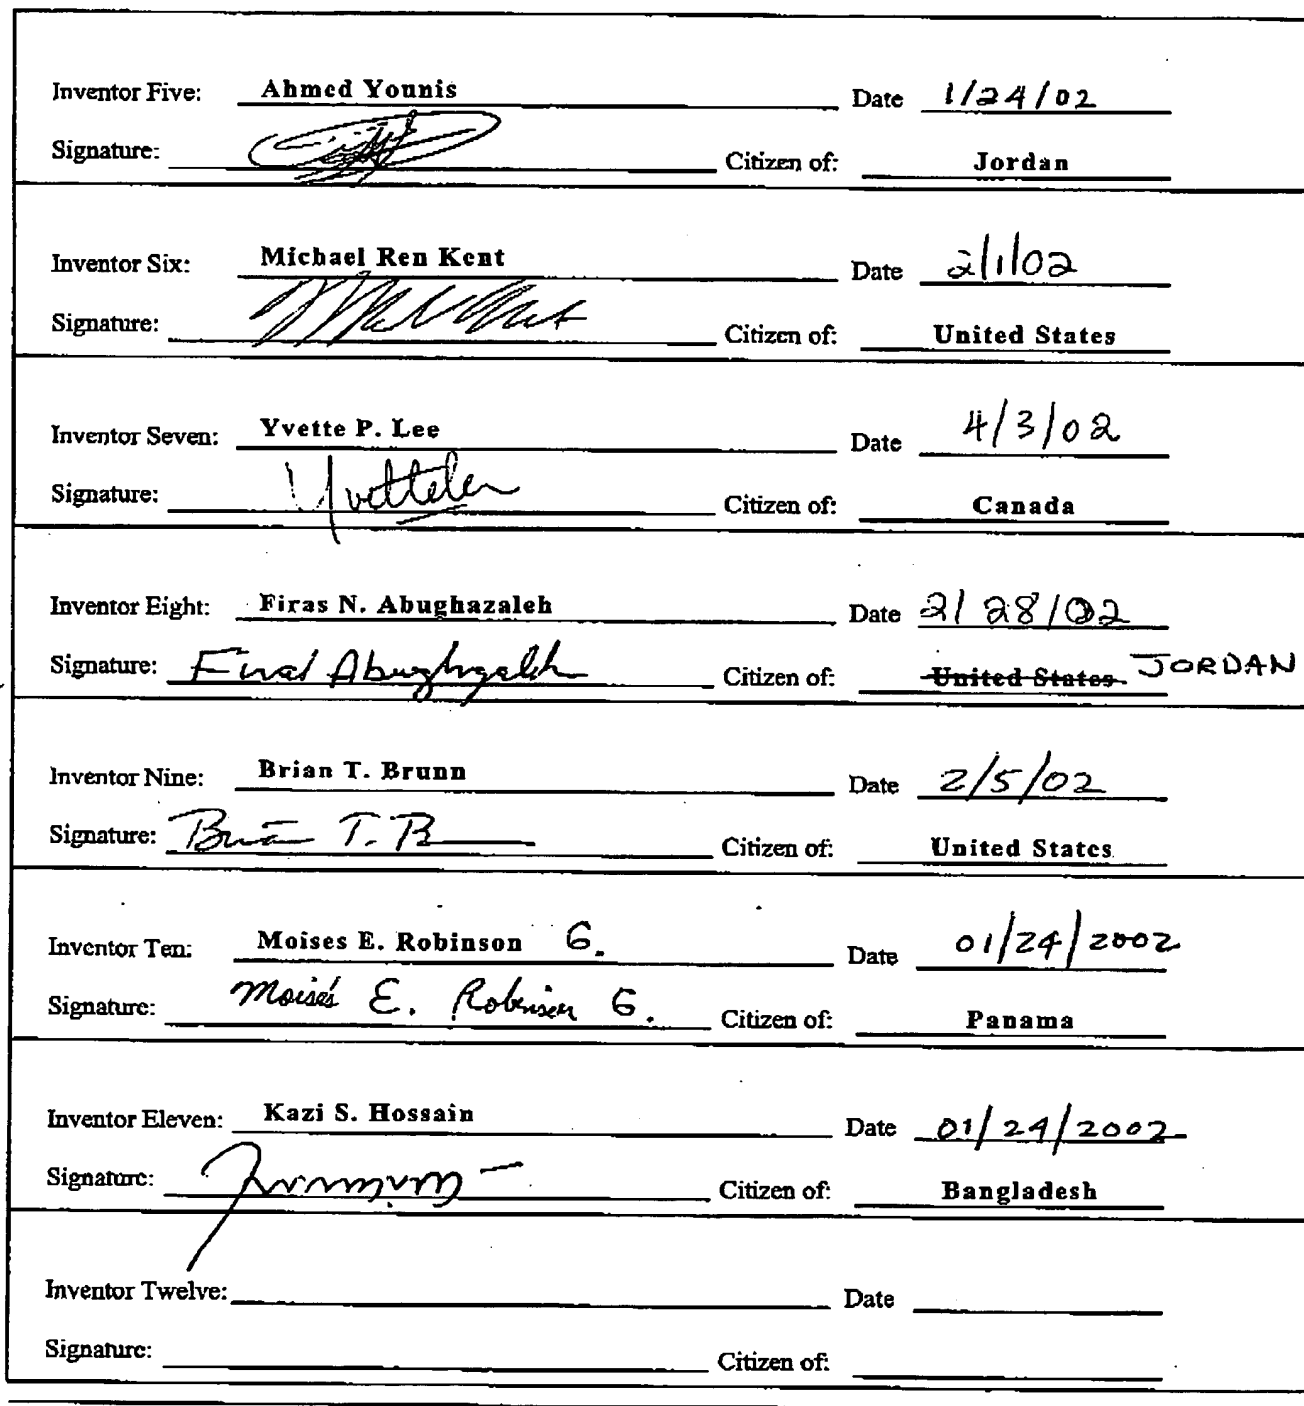 Inventor Five: Ahmed Younis Date 1/24/02
Signature: Citizen of: Jordan
Inventor Six: Michael Ren Kent Date 2/1/02
Signature: Citizen of: United States
Inventor Seven: Yvette P. Lee Date 4/3/02
Signature: Yvette Lee Citizen of: Canada
Inventor Eight: Firas N. Abughazaleh Date 2/28/02
Signature: Firas Abughazaleh Citizen of: United States JORDAN
Inventor Nine: Brian T. Brunn Date 2/5/02
Signature: Brian T. B Citizen of: United States
Inventor Ten: Moises E. Robinson G. Date 01/24/2002
Signature: Moisés E. Robinson G. Citizen of: Panama
Inventor Eleven: Kazi S. Hossain Date 01/24/2002
Signature: Citizen of: Bangladesh
Inventor Twelve: Date
Signature: Citizen of: